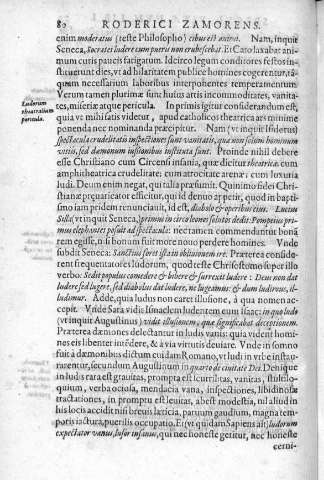 80 RODERICI ZAMORENS.
enim moderatus (teste Philosopho) cibus est animi. Nam, inquit
Seneca, Socrates ludere cum pueris non erubescebat. Et Cato laxabat ani-
mum curis paucis fatigatum. Idcirco legum conditores festos in-
stituerunt dies, vt ad hilaritatem publice homines cogerentur, tá-
quam necessarium laboribus interponentes temperamentum.
Verum tamen plurimæ sunt huius artis incommoditates, vanita-
tes, miseriæ atque pericula. In primis igitur considerandum est,
Ludorum
theatralium
pericula.
quia vt mihi satis videtur, apud catholicos theatrica ars minime
ponenda nec nominanda præcipitur. Nam (vt inquit Isidorus)
spectacula crudelitatis & inspectiones sunt vanitatis, quæ non solum hominum
vitiis, sed dæmonum iussionibus instituta sunt. Proinde nihil debere
esse Christiano cum Circensi insania, quæ dicitur theatrica: cum
amphitheatrica crudelitate: cum atrocitate arenæ: cum luxuria
ludi. Deum enim negat, qui talia præsumit. Quinimo fidei Chri-
stianæ præuaricator efficitur, qui id denuo appetit, quod in baptis-
mo iam pridem renunciauit, id est, diabolo & operibus eius. Lucius
Silla (vt inquit Seneca) primus in circo leones solutos dedit: Pompeius pri-
mus elephantes posuit ad spectacula: nec tamen commenduntur bona
rem egisse, nisi bonum sit more nouo perdere homines. Vnde
subdit Seneca: Sanctius foret ista in obliuionem ire. Præterea conside-
rent frequentatores ludorum, quod teste Chrisostomo super illo
verbo: Sedit populus comedere & bibere & surrexit ludere: Deus non dat
ludere sed lugere, sed diabolus dat ludere, ne lugeamus: & dum ludimus, il-
ludimur. Adde, quia ludus non caret illusione, à qua nomen ac-
cepit. Vnde Sara vidit Ismaelem ludentem cum Isaac: in quo ludo
(vt inquit Augustinus) vidit illusionem, quæ significabat deceptionem.
Præterea dæmones delectantur in ludis vanis: quia vident homi-
nes eis libenter intédere, & à via virtutis deuiare. Vnde in somno
fuit à dæmonibus dictum cuidam Romano, vt ludi in vrbe instau-
rentur, secundum Augustinum in quarto de ciuitate Dei. Denique
in ludis rara est grauitas, prompta est scurrilitas, vanitas, stultilo-
quium, verba ociosa, mendacia vana, inspectiones, libidinosæ
tractationes, in promptu est leuitas, abest modestia, nil aliud in
his locis accidit nisi breuis lætitia, paruum gaudium, magna tem-
poris iactura, puerilis occupatio. Et (vt quidam Sapiens ait) ludorum
expectator vanus, lusor insanus, qui nec honeste gestitur, nec honeste
cerni-